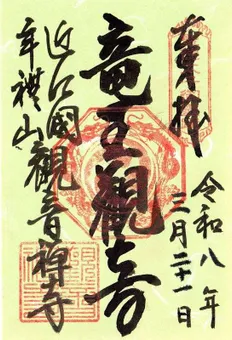 奉拝
令和八年
三月二十一日
竜王観音
近江國
観音禅寺
年禮山